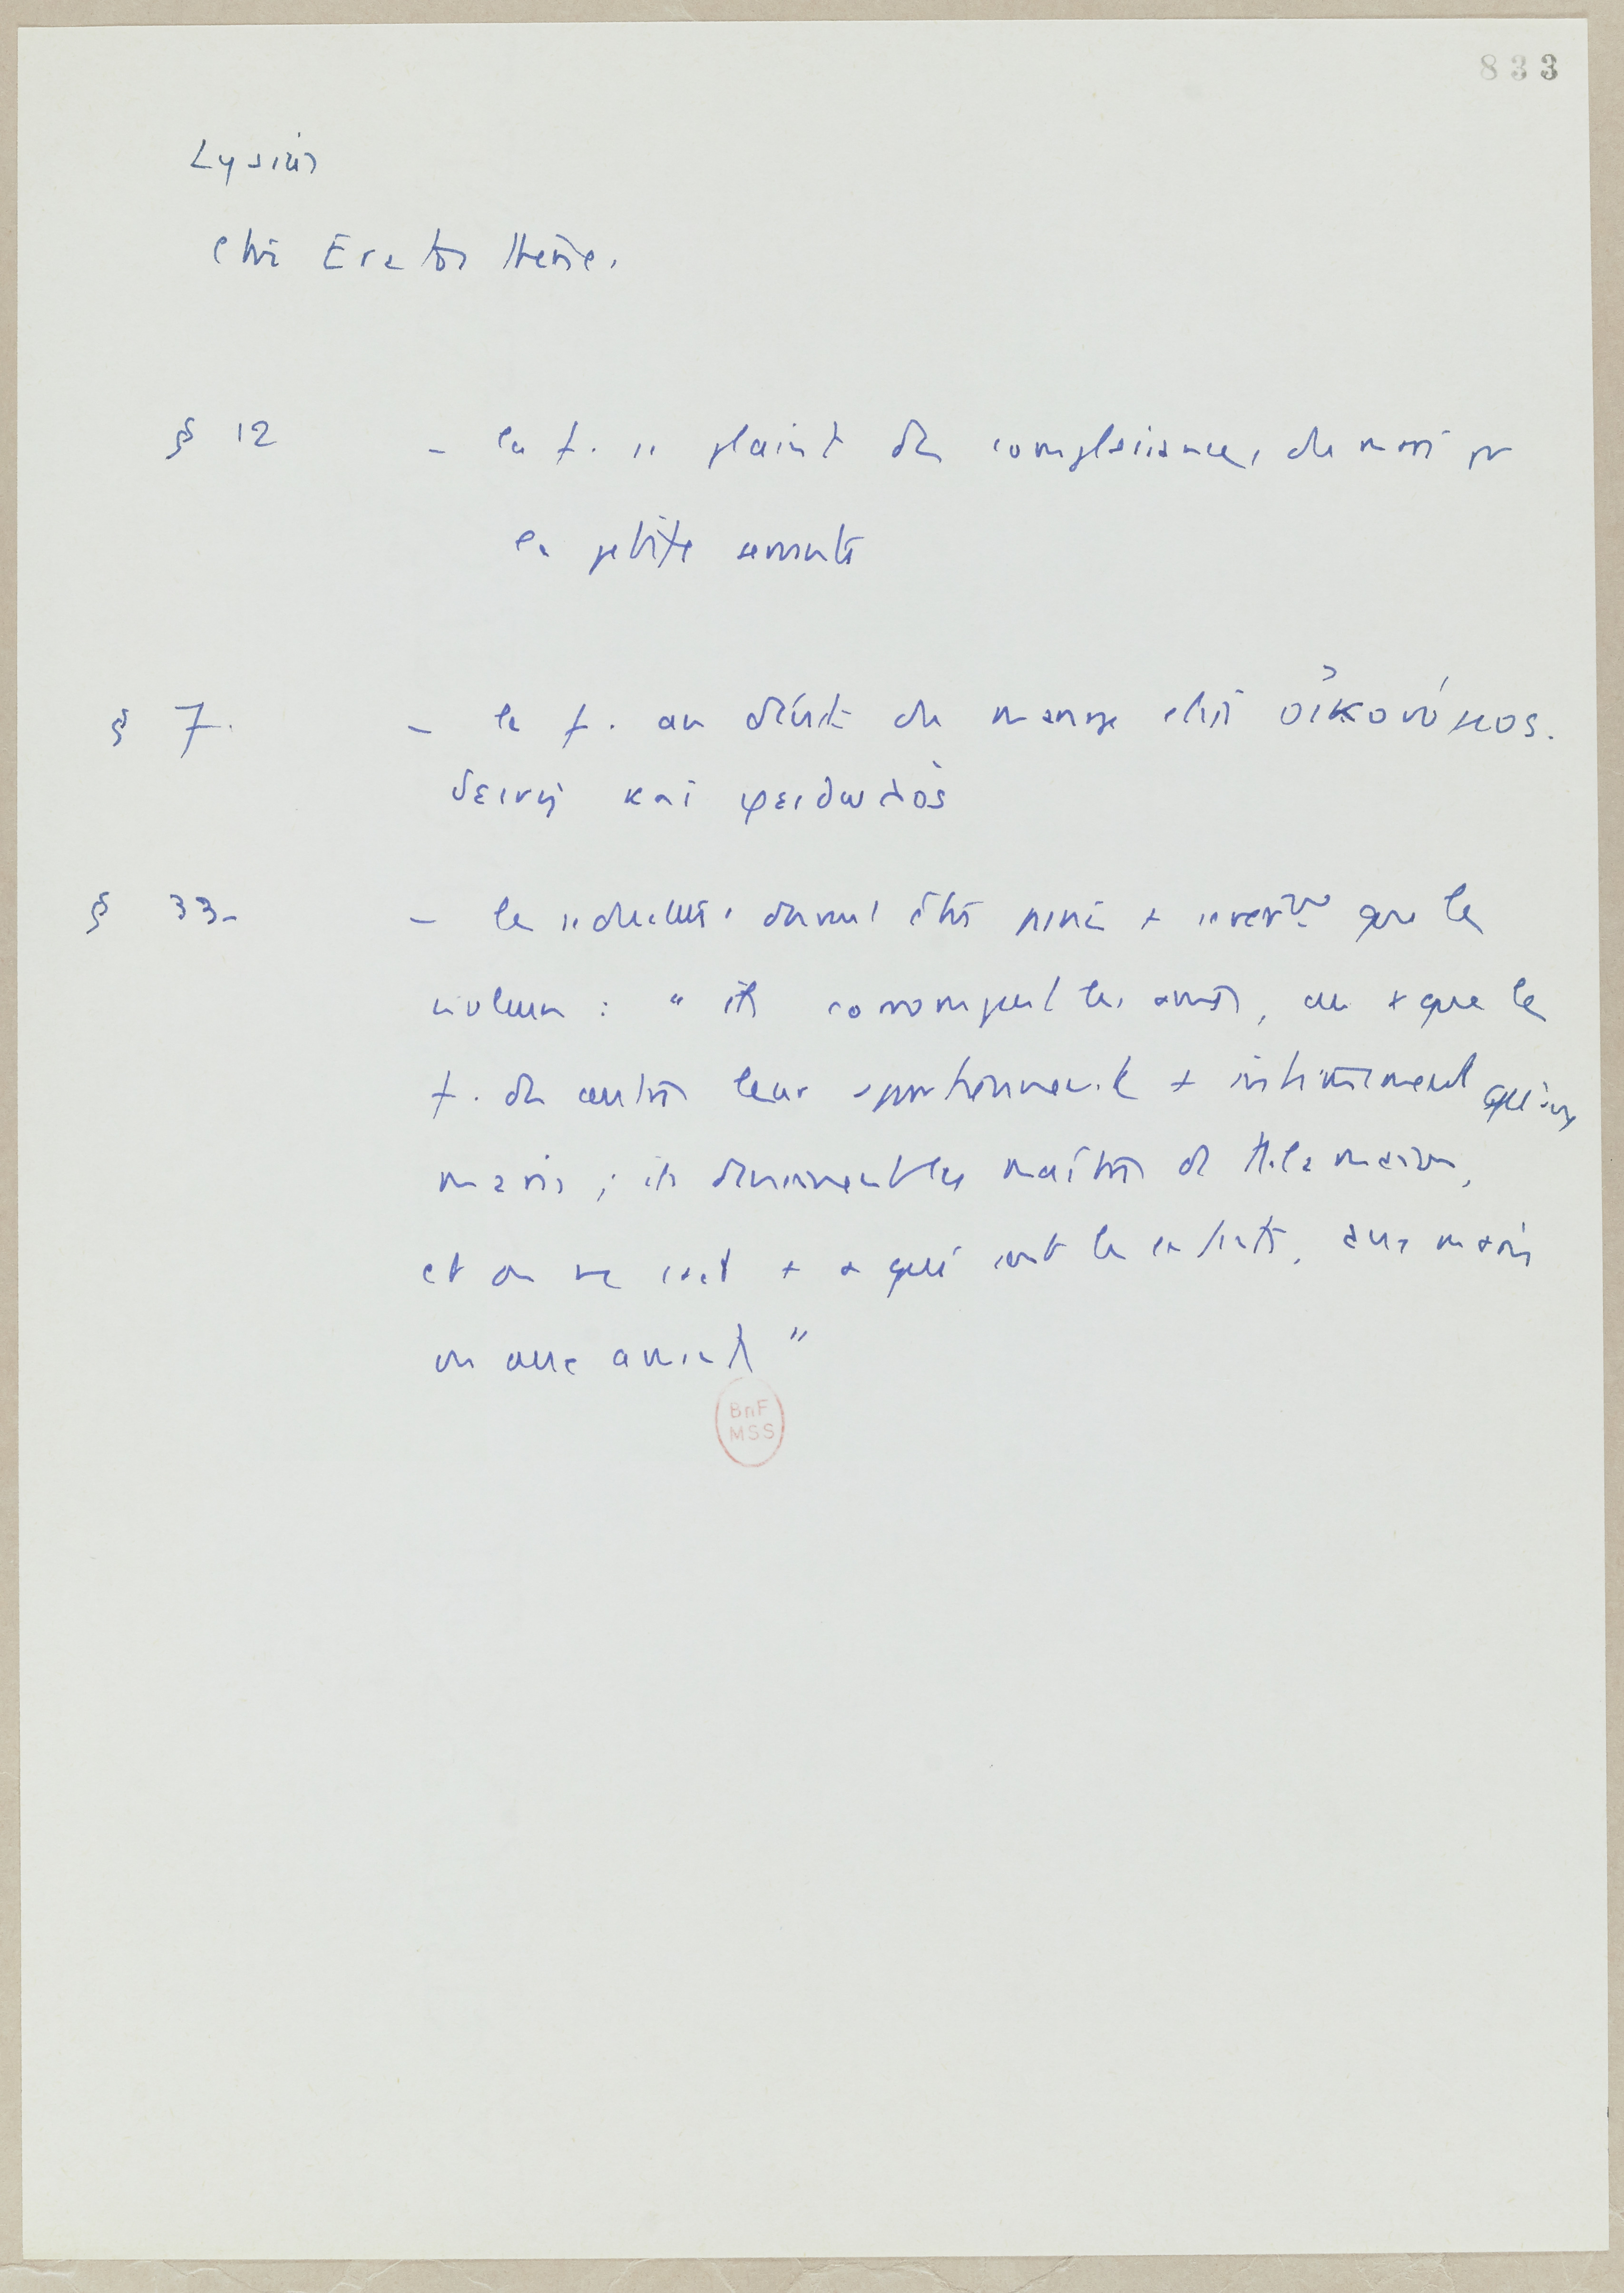 833
Lysias
Ctre Eratosthène.
§ 12 - la f. se plaint des complaisances du mari pr
la petite servante
§ 7. - la f. au début du mariage était οἰκονόμος.
δεινή καὶ φειδωλὸς
§ 33- - les séducteurs doivent être punis + sévèrt que les
violeurs : " ils corrompent les âmes, au + que les
f. des autres leur appartiennent + intimement qu'aux
maris ; ils deviennent les maîtres de tte la maison,
et on ne sait + à qui sont les enfants, aux maris
ou aux amants "
BnF
MSS